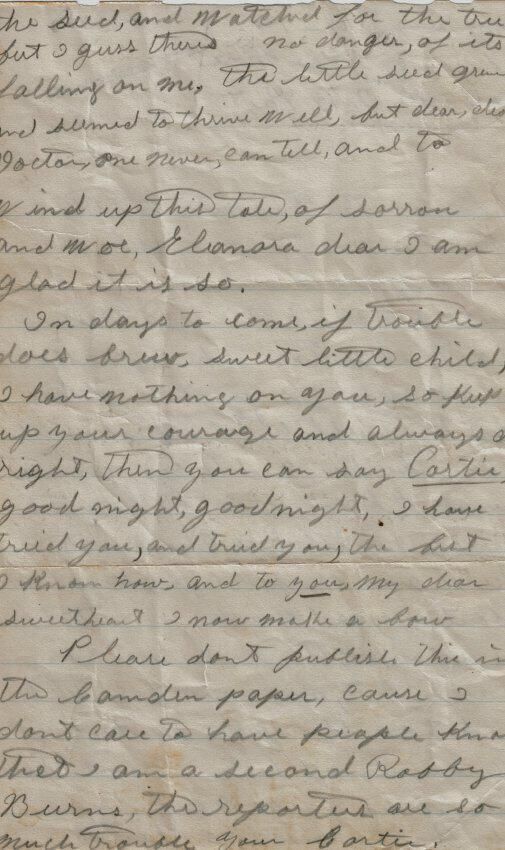 the seed, and watched for the tree
but I guss theres no danger, of its
falling on me. the little seed grew
and seemed to thrive well, but dear,
Doctor, one never, can tell, and to
wind up this tale, of sorron
and woe, Eleanora dear I am
glad it is so.
In days to come, if trouble
does brew, sweet little child,
I have nothing on you, so keep
up your courage and always
right, then you can say Cartie,
good night, good night, I have
tried you, and tried you, the best
I know how, and to you, my dear
sweetheart I now make a bow
Please dont publish this in
the Camden paper, cause I
dont care to have people know
that I am a second Robby
Burns, the reporters are so
much trouble, your Cartie.